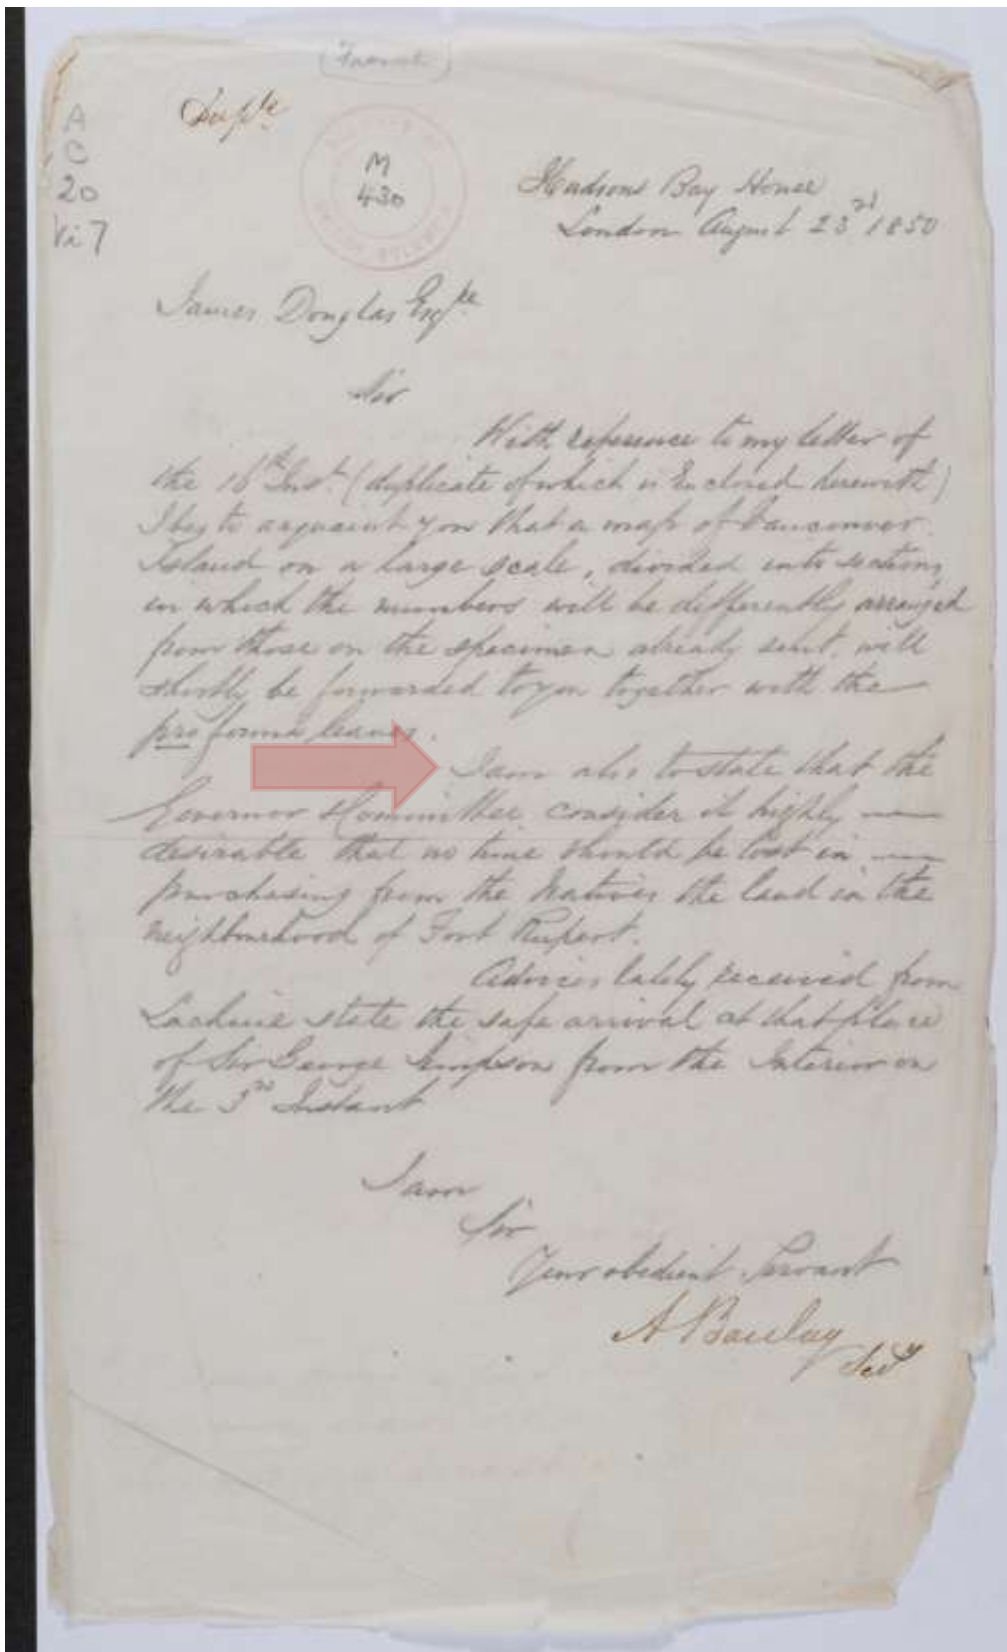 Dupte
A
C
20
Vi7
M
430
Hudsons Bay House
London August 23rd 1850
James Douglas Esqre
Sir
With reference to my letter of
the 16th Inst. (duplicate of which is Enclosed herewith)
I beg to acquaint you that a map of Vancouver
Island on a large scale, divided into sections,
in which the numbers will be differently arranged
from those on the specimen already sent, will
shortly be forwarded to you together with the
pro forma leases.
I am also to state that the
Governor & Committee consider it highly
desirable that no time should be lost in
purchasing from the Natives the land in the
neighbourhood of Fort Rupert.
Advices lately received from
Lachine state the safe arrival at that place
of Sir George Simpson from the Interior on
the 3rd Instant
I am
Sir
Your obedient Servant
A Barclay
Secy